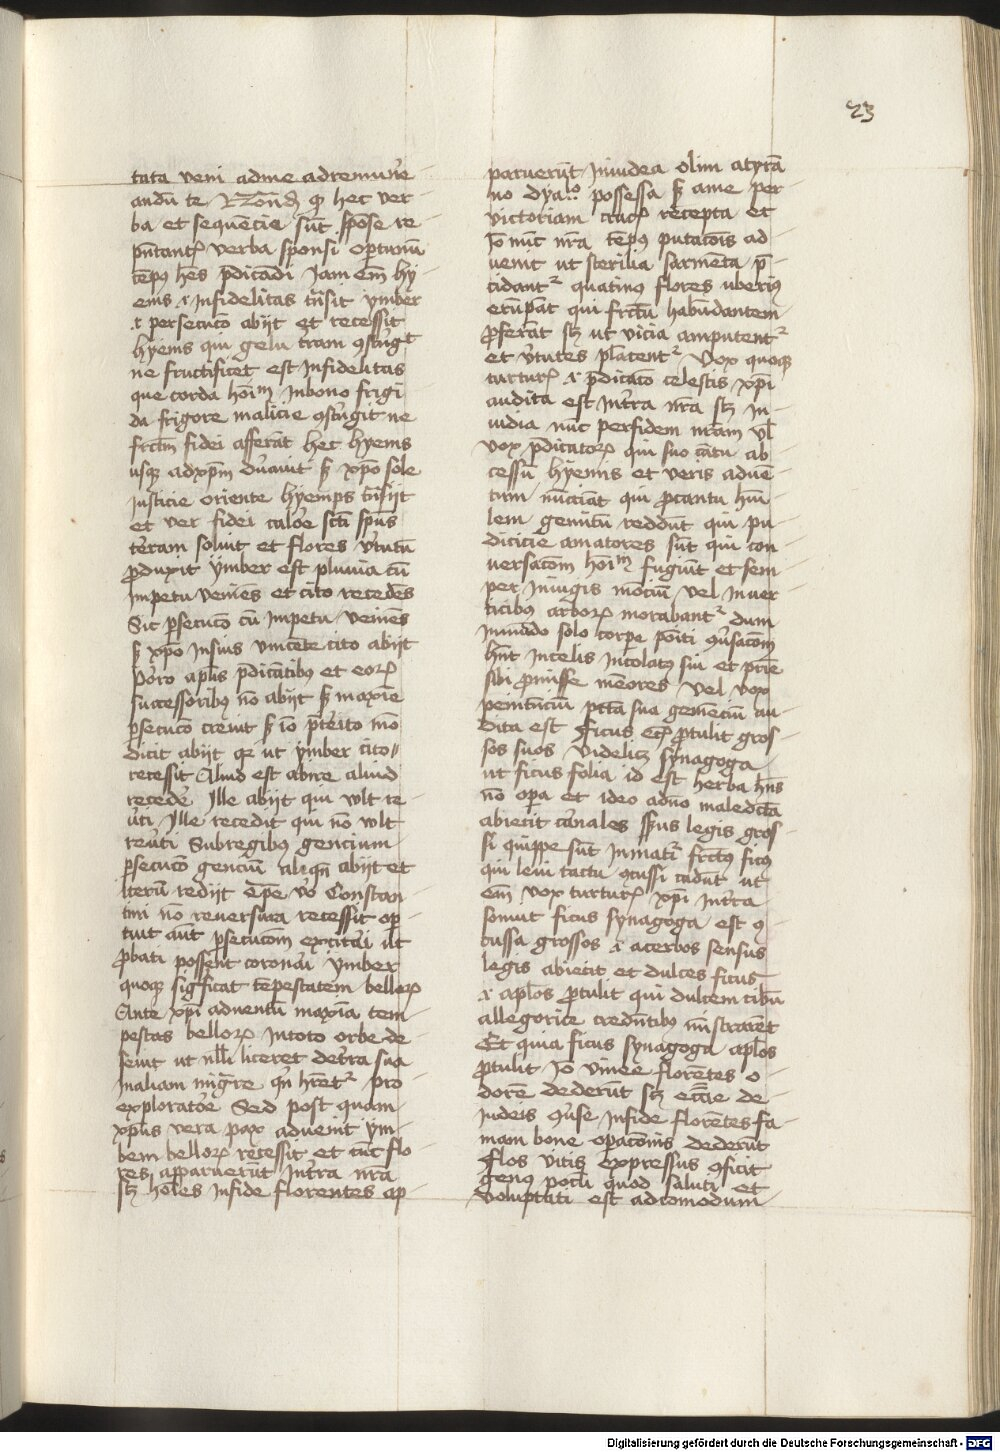 23
tata veni adme adremun̄e
andū te Rōnd̄ ꝙ hec ver
ba et sequēcie sūt spōse re
pn̄tantꝫ verba sponsi optunū
tēpꝰ hēs p̄dicādi Jam em̄ hy
ems .i. Infidelitas tn̄sit ymber
.i. persecucō abijt et recessit
hyems qui gelu t̄ram ꝯst̄git
ne fructificet est Infidelitas
que corda hoīm Inbono frigi
da frigore malicie ꝯst̄git ne
frctm̄ fidei afferāt hec hyems
usqꝫ adxp̄m durauit sꝫ xp̄o sole
Justicie oriente hyemps tn̄sijt
et ver fidei calōe sct̄i spūs
t̄eram soluit et flores v̄tutū
ꝓduxit ymber est pluuia cū
Impetu veniēs et cito recedēs
Sic ꝑsecucō cū Impetu veniēs
sꝫ xp̄o Insius vincēte cito abijt
Porro aplīs p̄dicātibꝰ et eorꝫ
successoribus nō abijt sꝫ maxīe
ꝑsecucō creuit sꝫ iō p̄terito mō
dicit abijt qꝛ ut ymber cito
recessit Aliud est abire aliud
recedē Ille abijt qui wlt re
ūti Ille recedit qui nō wlt
reūti Subregibus gencium
ꝑsecucō genciū aliqn̄ abijt et
Iterū redijt Tp̄e v̄o Constan
tini nō reuersura recessit op
tuit aūt ꝑsecucōm excitāi ut
ꝓbati possent coronāi ymber
quoqꝫ sigficat tēpestatem bellorꝫ
Ante xp̄i aduentū maxīa tem
pestas bellorꝫ Intoto orbe de
seuit ut nlli liceret det̄ra sua
Inaliam migre qn̄ hret̄ꝛ pro
exploratōe Sed post quam
xp̄us vera pax aduenit ym
bem bellorꝫ recessit et tūc flo
res apparuerūt Int̄ra nr̄a
scꝫ hoīes Infide florentes ap
paruerūt Iniudea olim atyrā
no dyal̄o possessa sꝫ ame per
victoriam crucꝫ recepta et
Jō nūc nr̄a tēpꝰ putacōis ad
uenit ut sterilia sarmēta p̄
cidantꝛ quatinꝰ flores uberiꝰ
erūpāt qui frctū habūdantem
ꝓferāt scꝫ ut vicia amputentꝛ
et v̄tutes plātentꝛ Vox quoqꝫ
turturꝫ .i. p̄dicacō celestis xp̄i
audita est Int̄ra nr̄a scꝫ In
iudia nūc perfidem nr̄am vl̄
vox p̄dicatorꝫ qui suo cātu ab
cessū hyemis et veris aduē
tum nūcciāt qui ꝓcantu hūi
lem gemitū reddūt qui pu
dicicie amatores sūt qui con
uersacōm hoīm fugiūt et sem
per Iniugis mōciū vel Inuer
ticibꝰ arborꝫ morabantꝛ dum
Inmūdo solo corpe pōiti ꝯūsacōm
hn̄t Incelis Incolatꝰ sui et pctīe
sibi ꝓmisse mēores Vel vox
penitūciū pctā sua gemēciū au
dita est Ficus ec̄ ꝓtulit gros
sos suos Videlicꝫ synagoga
ut ficus folia id est herba hn̄s
nō opa et ideo adno maledcta
abiecit carnales sēsus legis gros
si quippe sūt Inmat̄i frctꝰ ficꝰ
qui leui tactu ꝯcussi cadūt ut
em̄ vox turturꝫ xp̄i Int̄ra
sonuit ficus synagoga est ꝯ
cussa grossos .i. acerbos sensus
legis abiecit et dulces ficus
.i. aplōs ꝓtulit qui dulcem cibū
allegorice credn̄tibꝰ mīstrarēt
Et quia ficus synagoga aplōs
ꝓtulit Jō vinee florētes o
dorē dederūt scꝫ ecc̄ie de
Judeis ꝯūse Infide florētes fa
mam bone opacōnis dederūt
Flos vitis expressus ꝯficit
genꝰ poculi quod saluti et
voluptati est adcomodum